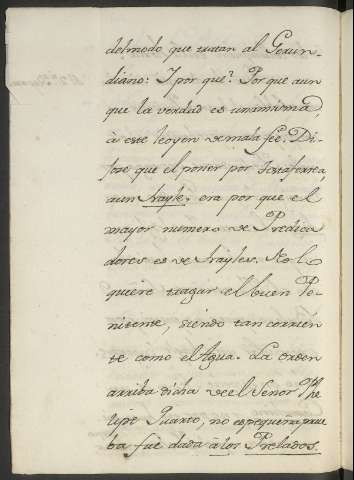 del modo que tratan al Gerun-
diano: I por què? Por que aun
que la verdad es una misma,
à este leoyen de mala feè. Di-
jose que el poner por
aun frayle, era por que el
mayor numero de Predica
dores es de frayles. No lo
quiere tragar el buen Pe-
nitente, siendo tan corrien
te como el Agua. La orden
arriba dicha de el Señor Phe
lipe Quarto, no es pequeña prue
ba fuè dada à los Prelados.